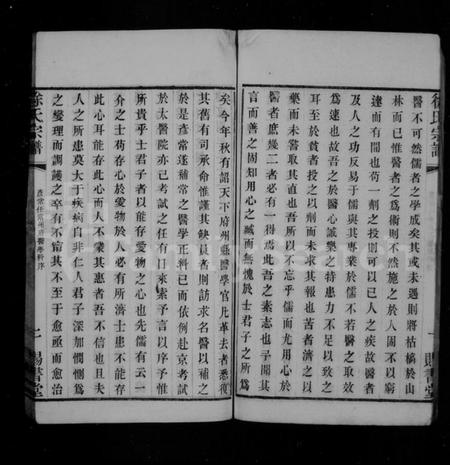 徐氏宗譜
醫不可然儒者之學成矣其或未遇則將枯槁於山
林而已惟醫者之為術則不然施之於人固不以窮
達而有間也苟一劑之投則可以已人之疾故醫者
及人之功反易于儒與其專業於儒不若醫之取效
為速也故吾之於醫心誠樂之特患力不足以致之
耳至於貧者授之以劑而未求其報也苦者濟之以
藥而未嘗取其直也吾所以不忘乎儒而尤用心於
醫者庶幾二者必有一得焉此吾之素志也予聞其
言而善之固知用心之臧而無愧於士君子之所為
一 賜書堂
矣今年秋有詔天下府州縣醫學官凡革去者悉復
其舊有司承命惟謹其缺員者則訪求名醫以補之
於是彥常遂補常之醫學正科已而依例赴京考試
於太醫院亦已考試之何日來索予言以序予惟
所貴乎士君子者以能存愛物之心也先儒有云一
介之士苟存心於愛物於人必有所濟士患不能存
此心耳能存此心而人不蒙其惠者吾不信也且夫
人之所患莫大于疾病自非仁人君子深加憫惻爲
之燮理而調護之卒有不甯其不至于愈亟而愈治
彥常任常州府醫學科序
七 賜書堂
徐氏宗譜